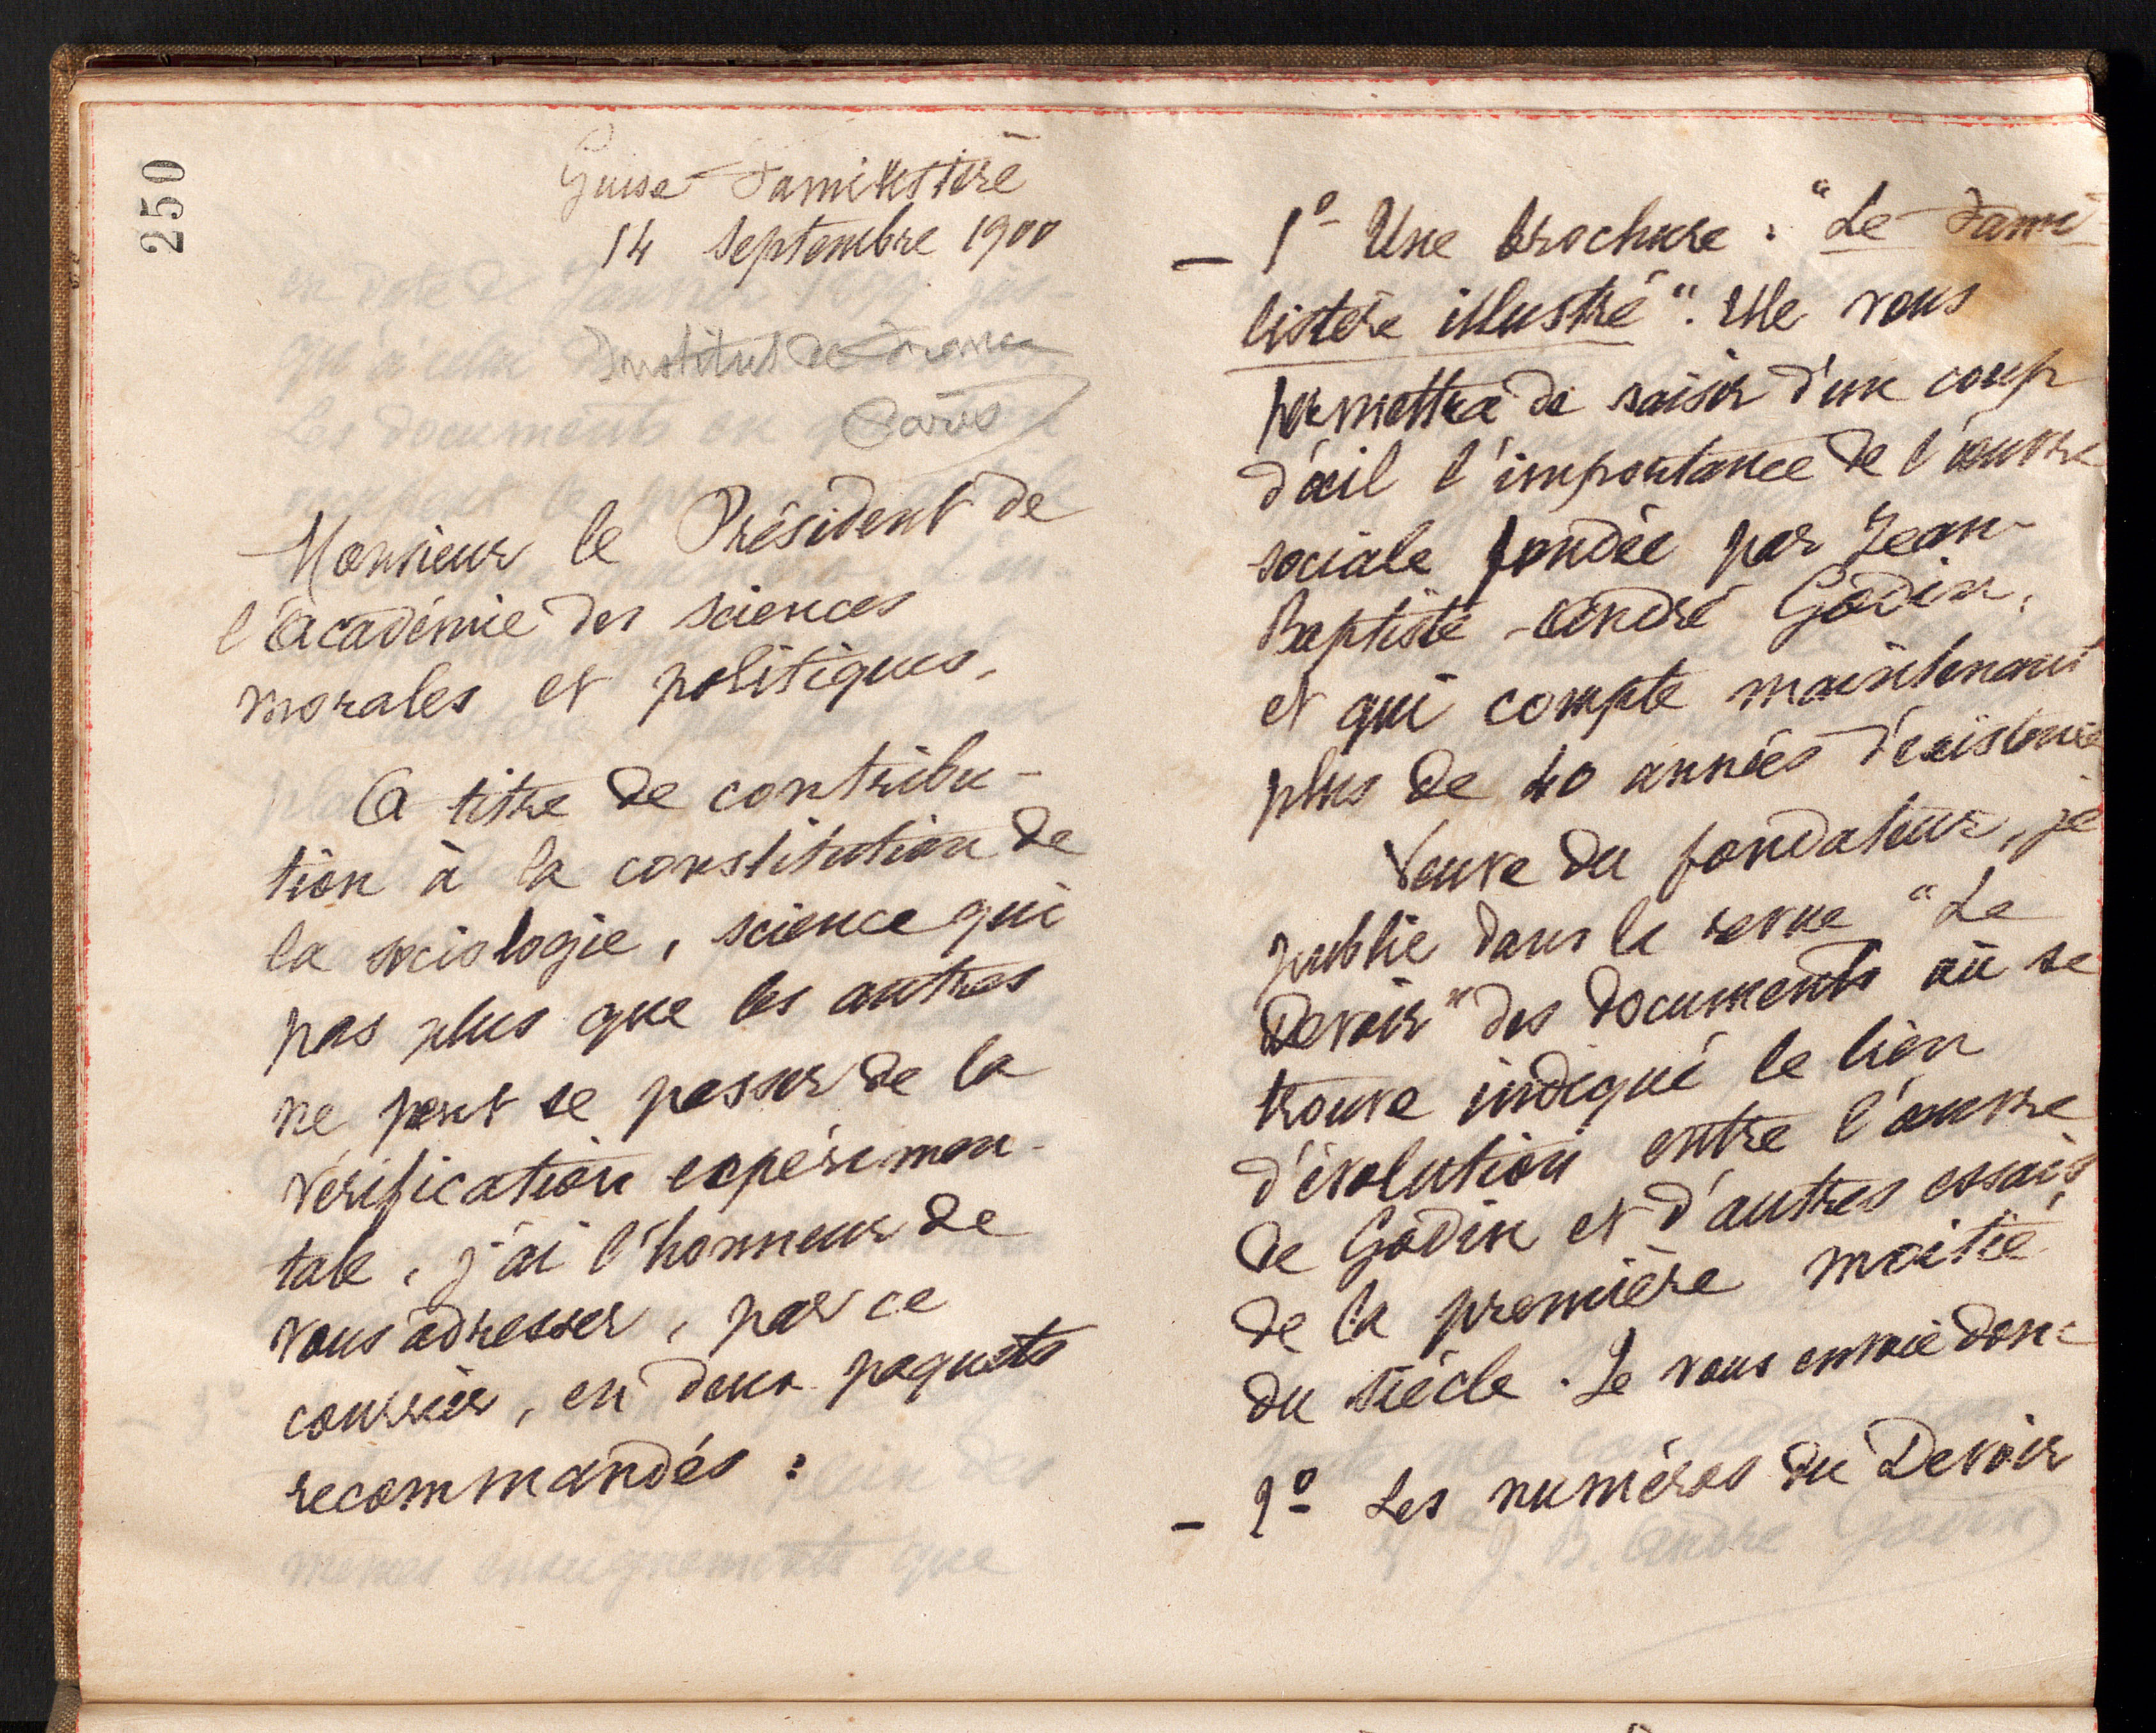 250
Guise Familistère
14 septembre 1900
Institut de France
Paris
Monsieur le Président de
l'Académie des sciences
morales et politiques,
A titre de contribu-
tion à la constitution de
la sociologie, science qui
pas plus que les autres
ne peut se passer de la
vérification expérimen-
tale, j'ai l'honneur de
vous adresser, par ce
courrier, en deux paquets
recommandés :
— 1º Une brochure : "Le Fami-
listère illustré". Elle vous
permettra de saisir d'un coup
d'œil l'importance de l'œuvre
sociale fondée par Jean-
Baptiste-André Godin,
et qui compte maintenant
plus de 40 années d'existence
Veuve du fondateur, je
publie dans la revue "Le
Devoir" des documents où se
trouve indiqué le lien
d'évolution entre l'œuvre
de Godin et d'autres essais
de la première moitié
du siècle. Je vous envoie donc
— 2º Les numéros du Devoir